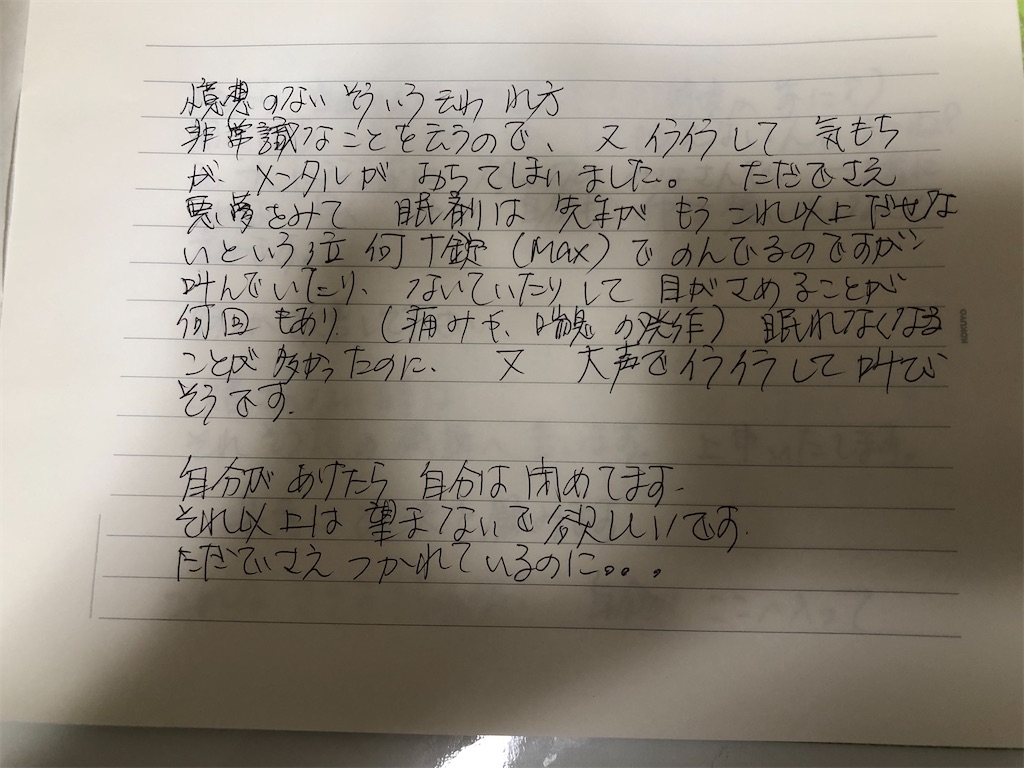 憶想のないそういう云われ方
非常識なことを云うので、又イライラして気もち
が、メンタルがおちてしまいました。ただでさえ
悪い夢をみて 眠剤は先生がもうこれ以上だせな
いという位何十錠(Max)でのんでるのですが、
叫んでいたり、ないていたりして目がさめることが
何回もあり(痛みや、喘息の発作)眠れなくなる
ことが多かったのに、又 大声でイライラして叫び
そうです。
自分があけたら自分は閉めてます。
それ以上は望まないで欲しいです。
ただでさえつかれているのに。。。